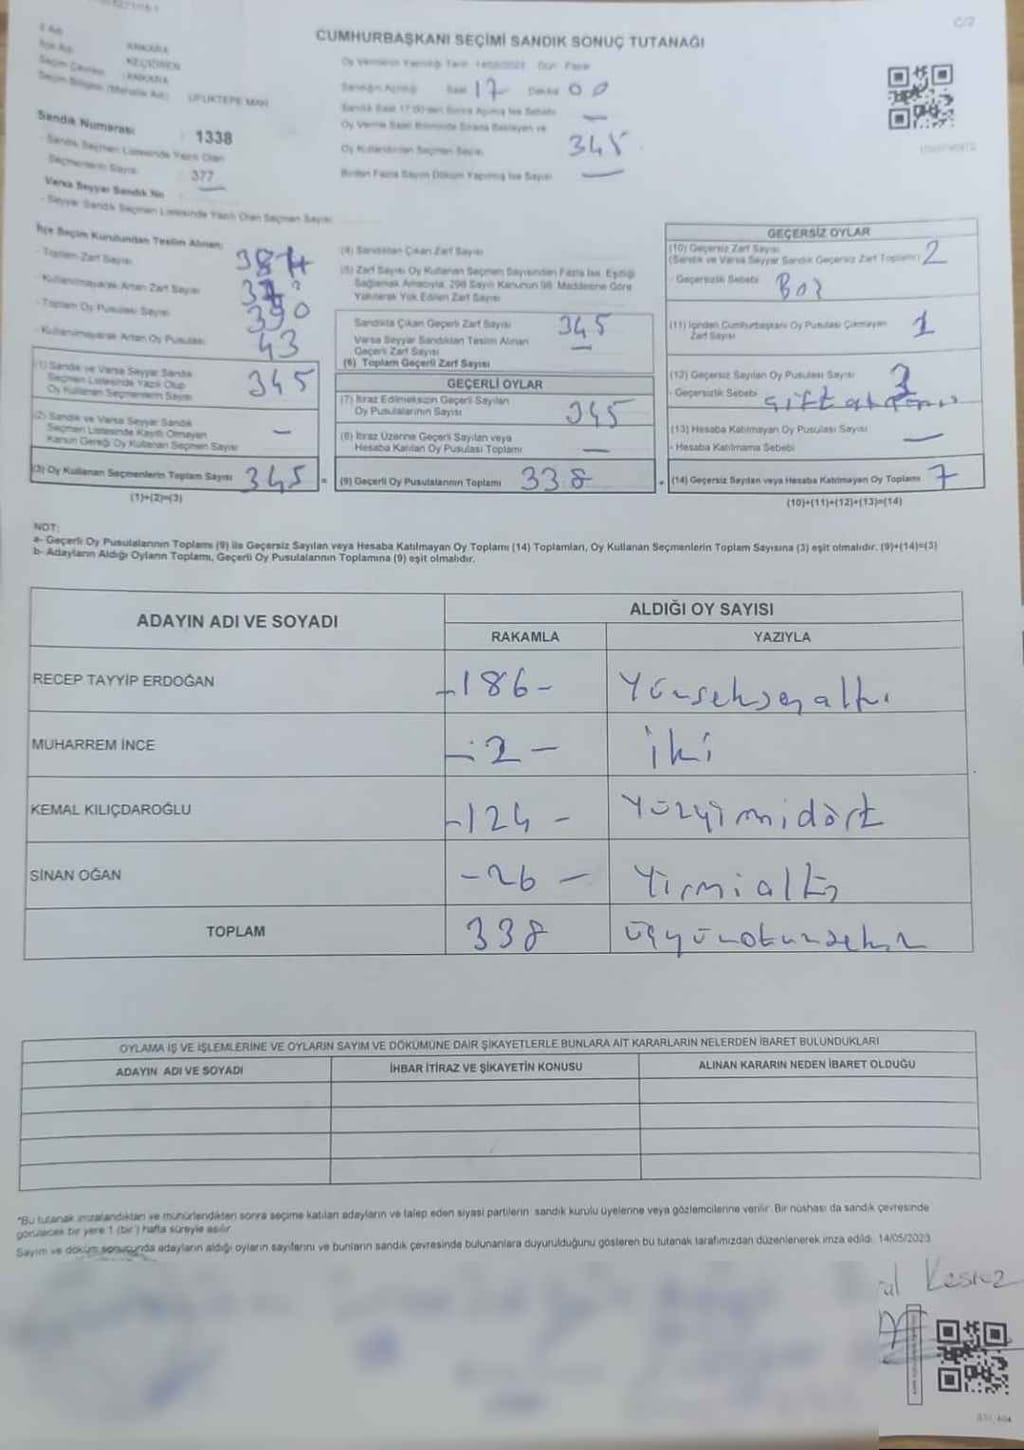 C/2
CUMHURBAŞKANI SEÇİMİ SANDIK SONUÇ TUTANAĞI
İl Adı ANKARA
İlçe Adı KEÇİÖREN
Seçim Çevresi ANKARA
Seçim Bölgesi (Mahalle Adı) UFUKTEPE MAH
Oy Vermenin Yapıldığı Tarih 14/05/2023 Gün Pazar
Sandığın Açılışı Saat 17 Dakika 00
Sandık Saat 17:00'den Sonra Açılmış İse Sebebi —
Oy Verme Saati Bitiminde Sırada Bekleyen ve
Oy Kullandırılan Seçmen Sayısı 345
Birden Fazla Sayım Döküm Yapılmış İse Sayısı —
Sandık Numarası : 1338
- Sandık Seçmen Listesinde Yazılı Olan
Seçmenlerin Sayısı 377
Varsa Seyyar Sandık No —
- Seyyar Sandık Seçmen Listesinde Yazılı Olan Seçmen Sayısı
İlçe Seçim Kurulundan Teslim Alınan;
- Toplam Zarf Sayısı
- Kullanılmayarak Artan Zarf Sayısı
- Toplam Oy Pusulası Sayısı 390
- Kullanılmayarak Artan Oy Pusulası 43
(1) Sandık ve Varsa Seyyar Sandık
Seçmen Listesinde Yazılı Olup
Oy Kullanan Seçmenlerin Sayısı 345
(2) Sandık ve Varsa Seyyar Sandık
Seçmen Listesinde Kayıtlı Olmayan
Kanun Gereği Oy Kullanan Seçmen Sayısı —
(3) Oy Kullanan Seçmenlerin Toplam Sayısı 345 =
(1)+(2)=(3)
(4) Sandıktan Çıkan Zarf Sayısı
(5) Zarf Sayısı Oy Kullanan Seçmen Sayısından Fazla İse, Eşitliği
Sağlamak Amacıyla, 298 Sayılı Kanunun 98. Maddesine Göre
Yakılarak Yok Edilen Zarf Sayısı
Sandıkta Çıkan Geçerli Zarf Sayısı 345
Varsa Seyyar Sandıktan Teslim Alınan
Geçerli Zarf Sayısı —
(6) Toplam Geçerli Zarf Sayısı
GEÇERLİ OYLAR
(7) İtiraz Edilmeksizin Geçerli Sayılan
Oy Pusulalarının Sayısı 345
(8) İtiraz Üzerine Geçerli Sayılan veya
Hesaba Katılan Oy Pusulası Toplamı —
(9) Geçerli Oy Pusulalarının Toplamı 338 +
GEÇERSİZ OYLAR
(10) Geçersiz Zarf Sayısı
(Sandık ve Varsa Seyyar Sandık Geçersiz Zarf Toplamı) 2
- Geçersizlik Sebebi Boş
(11) İçinden Cumhurbaşkanı Oy Pusulası Çıkmayan
Zarf Sayısı 1
(12) Geçersiz Sayılan Oy Pusulası Sayısı
- Geçersizlik Sebebi
(13) Hesaba Katılmayan Oy Pusulası Sayısı —
- Hesaba Katılmama Sebebi
(14) Geçersiz Sayılan veya Hesaba Katılmayan Oy Toplamı 7
(10)+(11)+(12)+(13)=(14)
NOT:
a- Geçerli Oy Pusulalarının Toplamı (9) ile Geçersiz Sayılan veya Hesaba Katılmayan Oy Toplamı (14) Toplamları, Oy Kullanan Seçmenlerin Toplam Sayısına (3) eşit olmalıdır. (9)+(14)=(3)
b- Adayların Aldığı Oyların Toplamı, Geçerli Oy Pusulalarının Toplamına (9) eşit olmalıdır.
ADAYIN ADI VE SOYADI ALDIĞI OY SAYISI
RAKAMLA YAZIYLA
RECEP TAYYİP ERDOĞAN -186- Yüzseksenaltı
MUHARREM İNCE -2- iki
KEMAL KILIÇDAROĞLU -124- Yüzyirmidört
SİNAN OĞAN -26- Yirmialtı
TOPLAM 338 üçyüzotuzsekiz
OYLAMA İŞ VE İŞLEMLERİNE VE OYLARIN SAYIM VE DÖKÜMÜNE DAİR ŞİKAYETLERLE BUNLARA AİT KARARLARIN NELERDEN İBARET BULUNDUKLARI
ADAYIN ADI VE SOYADI İHBAR İTİRAZ VE ŞİKAYETİN KONUSU ALINAN KARARIN NEDEN İBARET OLDUĞU
*Bu tutanak imzalandıktan ve mühürlendikten sonra seçime katılan adayların ve talep eden siyasi partilerin sandık kurulu üyelerine veya gözlemcilerine verilir. Bir nüshası da sandık çevresinde
görülecek bir yere 1 (bir) hafta süreyle asılır.
Sayım ve döküm sonucunda adayların aldığı oyların sayılarını ve bunların sandık çevresinde bulunanlara duyurulduğunu gösteren bu tutanak tarafımızdan düzenlenerek imza edildi. 14/05/2023